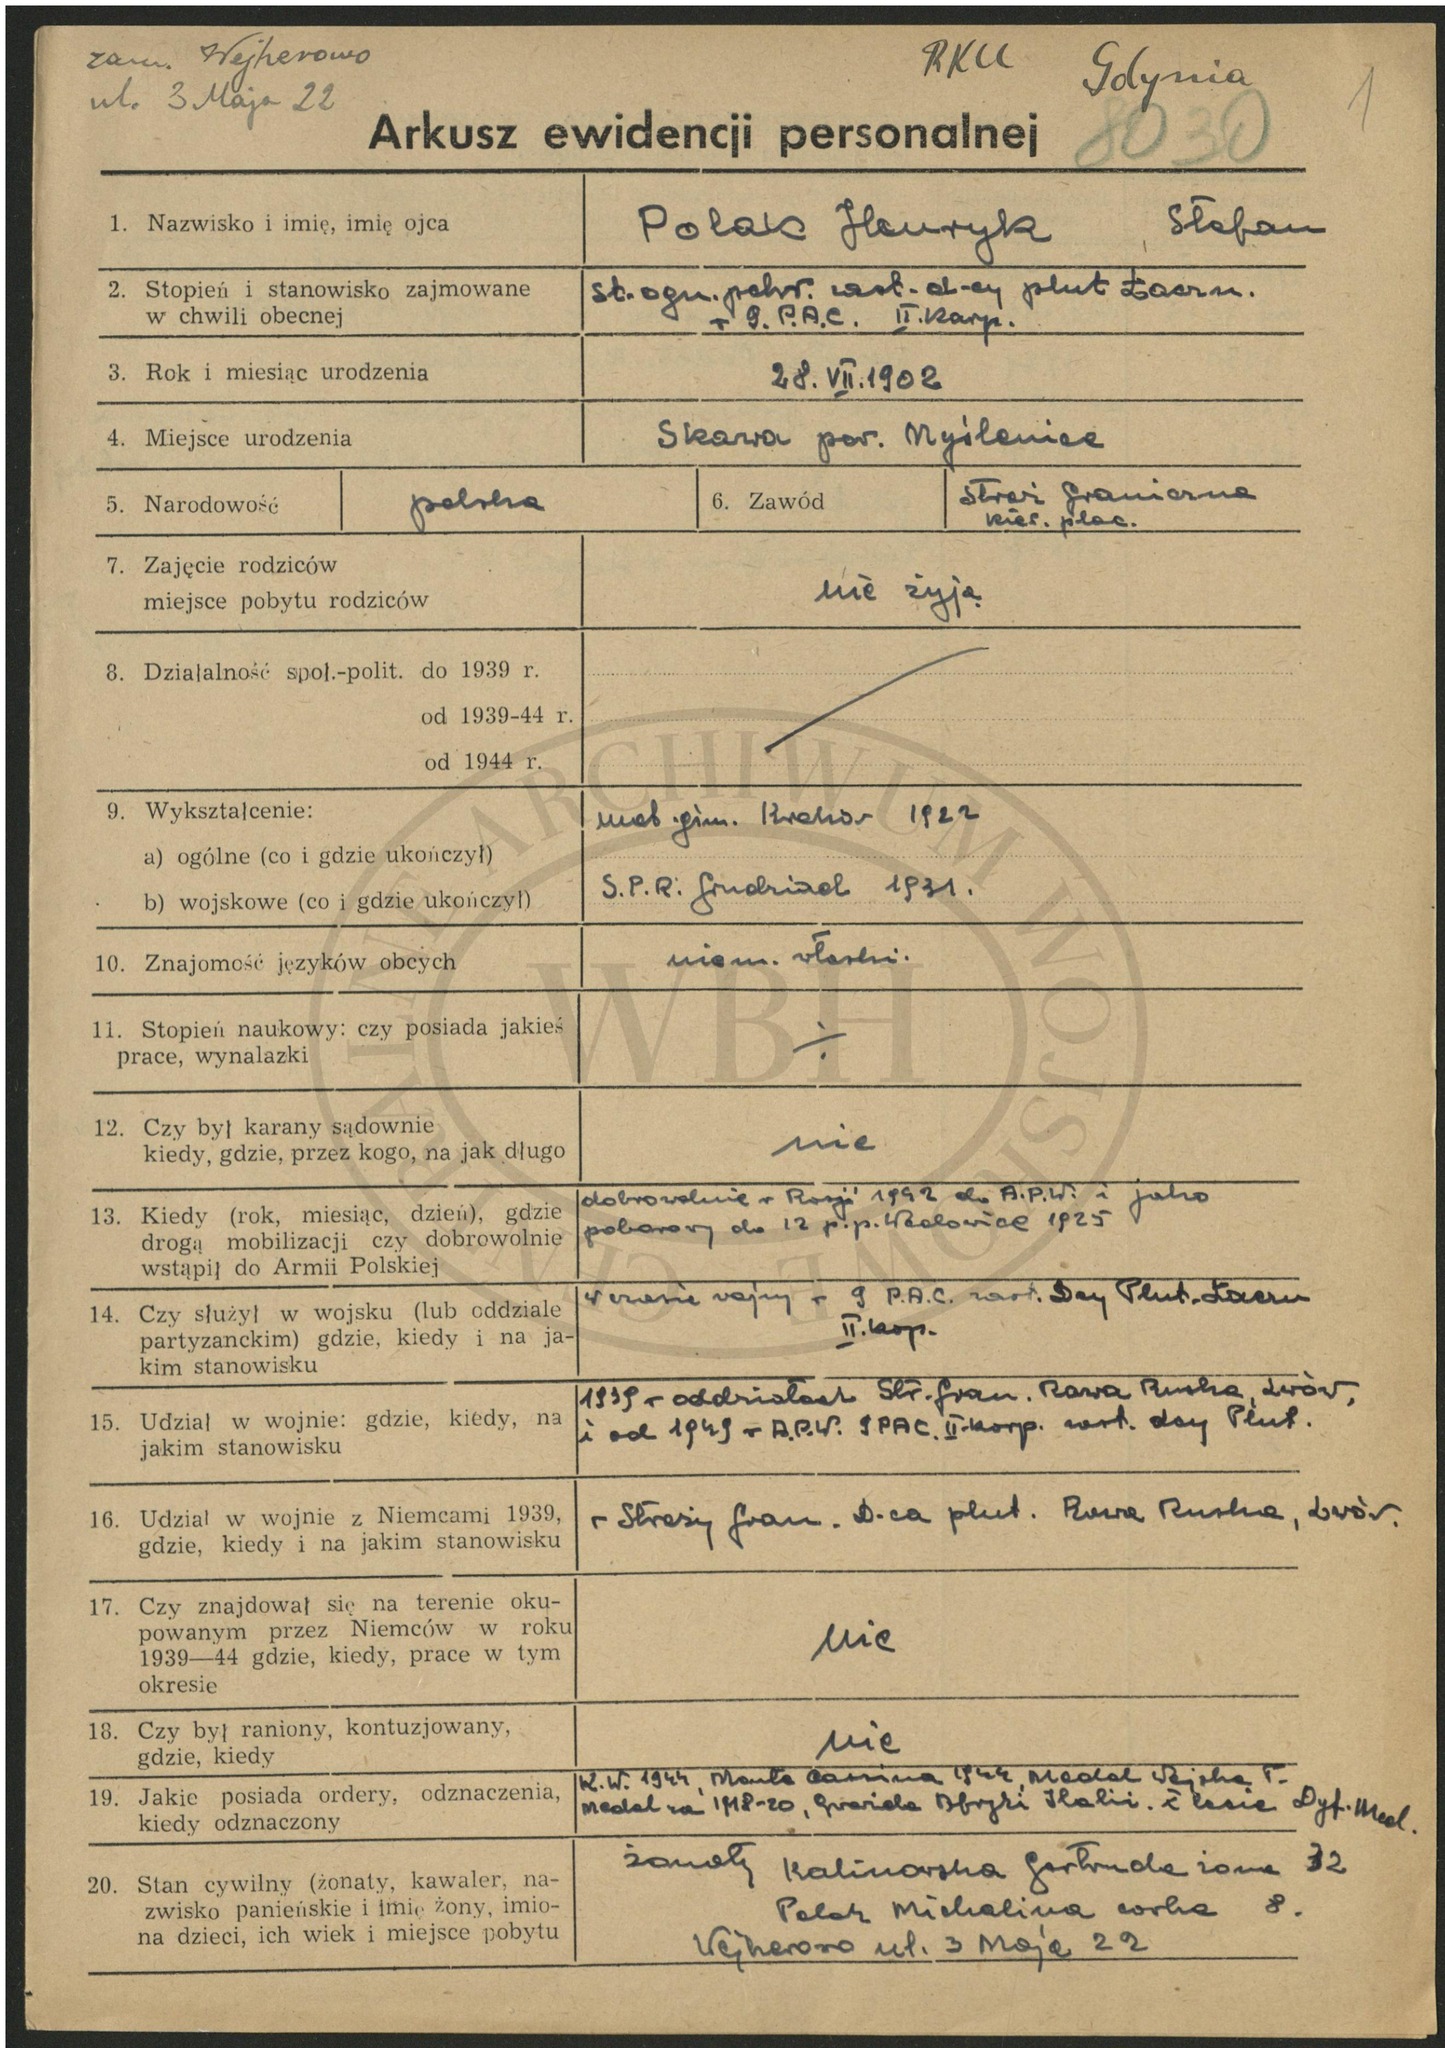 zam. Wejherowo
ul. 3 Maja 22
RKU Gdynia
8030
1
Arkusz ewidencji personalnej
1. Nazwisko i imię, imię ojca
Polak Henryk Stefan
2. Stopień i stanowisko zajmowane
w chwili obecnej
st. ogn. pchr. zast. d-cy plut Łączn.
w 9. P.A.C. II. Korp.
3. Rok i miesiąc urodzenia
28. VII. 1902
4. Miejsce urodzenia
Skawa pow. Myślenice
5. Narodowość
polska
6. Zawód
Straż Graniczna
kier. plac.
7. Zajęcie rodziców
miejsce pobytu rodziców
nie żyją
8. Działalność społ.-polit. do 1939 r.
od 1939-44 r.
od 1944 r.
9. Wykształcenie:
mat. gim. Kraków 1922
a) ogólne (co i gdzie ukończył)
b) wojskowe (co i gdzie ukończył)
S.P.R. Grudziądz 1931.
10. Znajomość języków obcych
niem. włoski.
11. Stopień naukowy: czy posiada jakieś
prace, wynalazki
÷
12. Czy był karany sądownie
kiedy, gdzie, przez kogo, na jak długo
nie
13. Kiedy (rok, miesiąc, dzień), gdzie
drogą mobilizacji czy dobrowolnie
wstąpił do Armii Polskiej
dobrowolnie w Rosji 1942 do A.P.W. i jako
poborowy do 12 p.p. Wadowice 1925
14. Czy służył w wojsku (lub oddziale
partyzanckim) gdzie, kiedy i na ja-
kim stanowisku
w czasie wojny w 9 P.A.C. zast. Dcy Plut. Łączn
II. korp.
15. Udział w wojnie: gdzie, kiedy, na
jakim stanowisku
1939 w oddziałach Str. Gran. Rawa Ruska, Lwów,
i od 1943 w A.P.W. 9 PAC. II korp. zast. dcy Plut.
16. Udział w wojnie z Niemcami 1939,
gdzie, kiedy i na jakim stanowisku
w Straży Gran. D-ca plut. Rawa Ruska, Lwów.
17. Czy znajdował się na terenie oku-
powanym przez Niemców w roku
1939—44 gdzie, kiedy, prace w tym
okresie
nie
18. Czy był raniony, kontuzjowany,
gdzie, kiedy
nie
19. Jakie posiada ordery, odznaczenia,
kiedy odznaczony
K.W. 1944, Monte Cassina 1944, Medal Wojska
Medal za 1918-20, Gwiazda Afryki Italii.
20. Stan cywilny (żonaty, kawaler, na-
zwisko panieńskie i imię żony, imio-
na dzieci, ich wiek i miejsce pobytu
żonaty Kalinowska Gertruda żona 32
Polak Michalina corka 8.
Wejherowo ul. 3 Maja 22
CENTRALNE ARCHIWUM WOJSKOWE
WBH